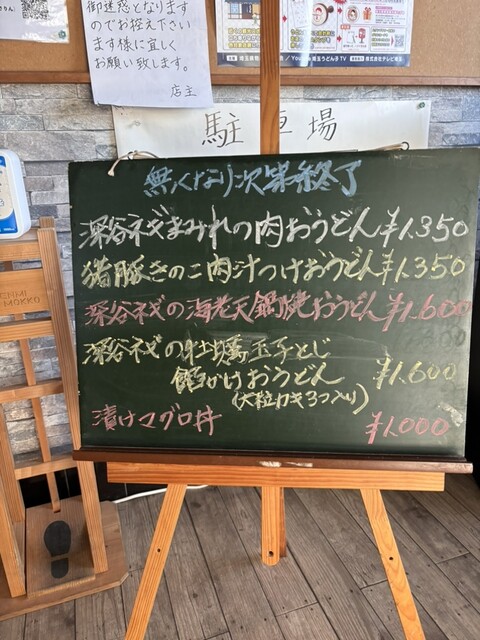 御迷惑となります
のでお控え下さい
ます様に宜しく
お願い致します。
店主
駐車場
無くなり次第終了
深谷ネギまみれの肉おうどん ¥1.350
猪豚きのこ肉汁つけおうどん ¥1.350
深谷ネギの海老天鍋焼おうどん ¥1.600
深谷ネギの牡蠣玉子とじ
餡かけおうどん ¥1.600
(大粒カキ3つ入り)
漬けマグロ丼 ¥1.000
MOKKO